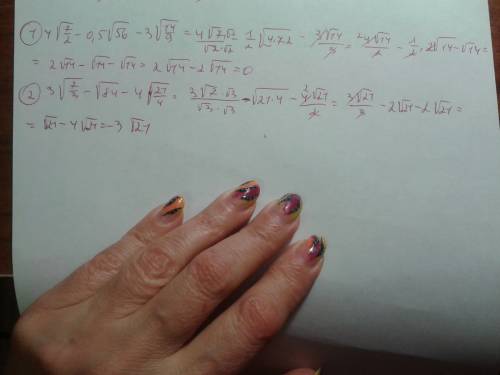 ① 4√(7/2) - 0,5√56 - 3√(14/9) = 4√7·√2/√2·√2 - 1/2 √(4·7·2) - 3√14/3 = 4√14/2 - 1/2·2√14 - √14 =
= 2√14 - √14 - √14 = 2√14 - 2√14 = 0
② 3√(7/3) - √84 - 4√(21/4) = 3√7·√3/√3·√3 - √21·4 - 4√21/2 = 3√21/3 - 2√21 - 2√21 =
= √21 - 4√21 = -3√21